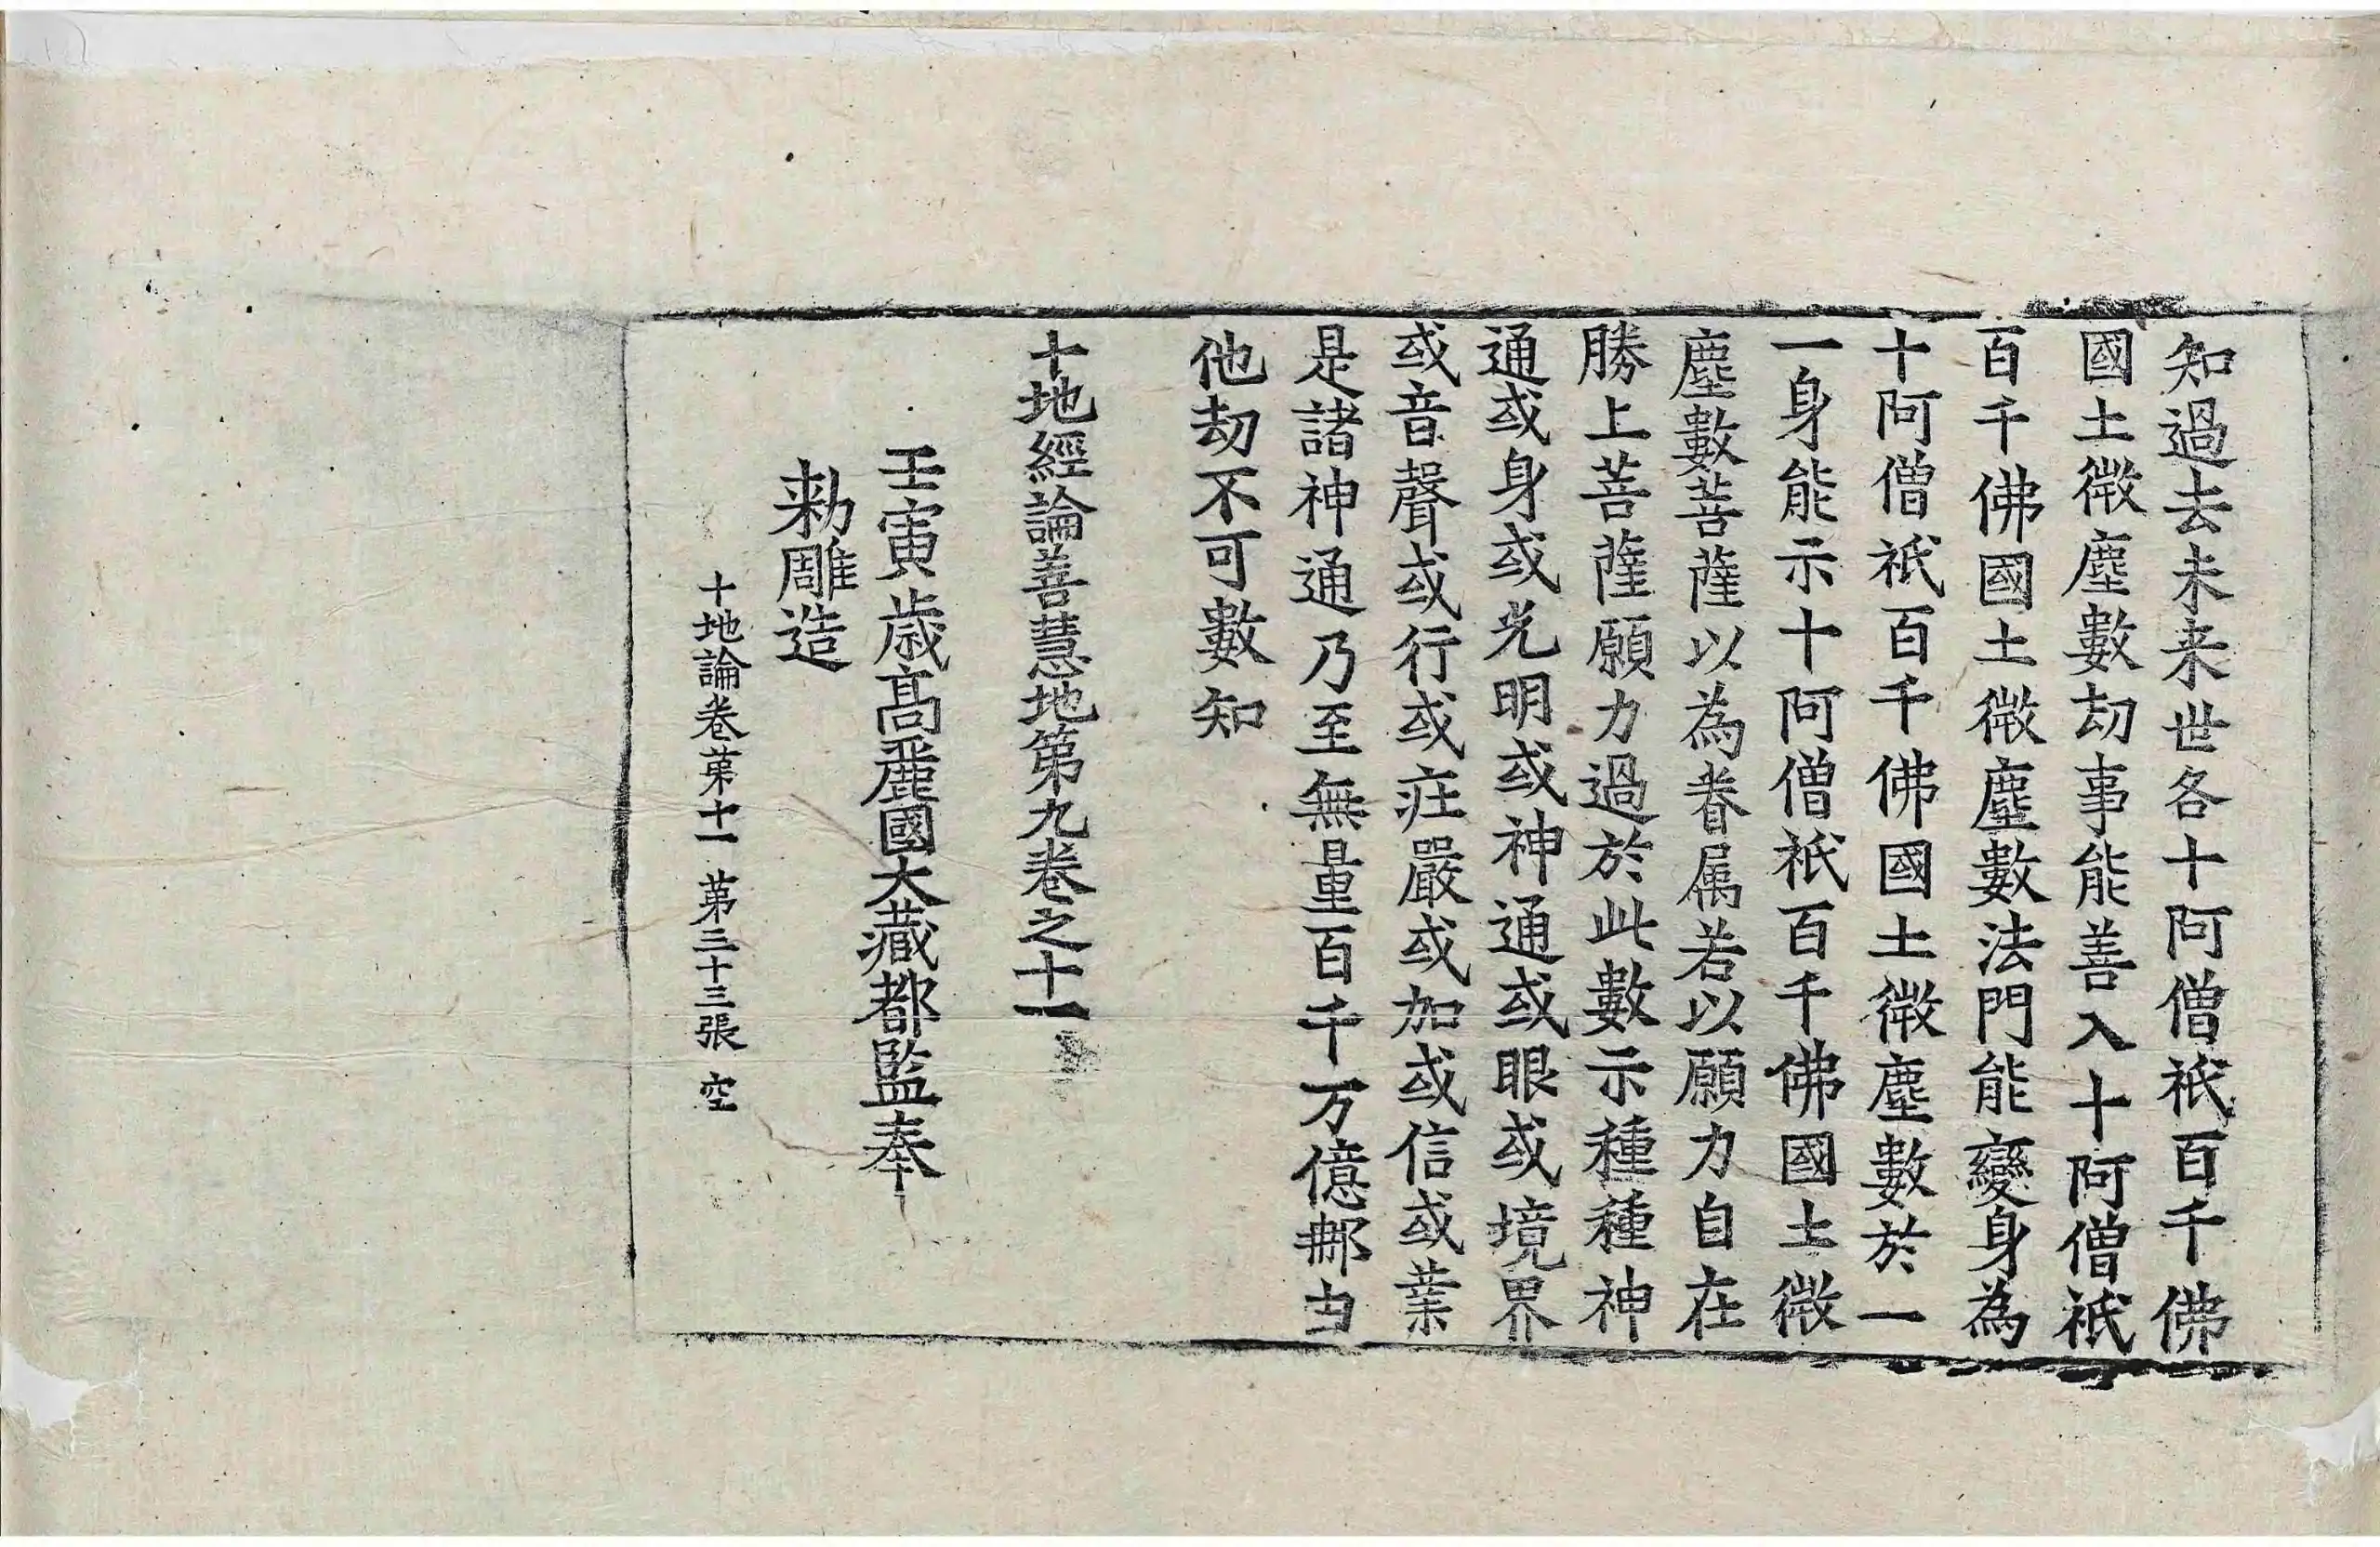 知過去未来世各十阿僧祇百千佛
國土微塵數劫事能善入十阿僧祇
百千佛國土微塵數法門能變身為
十阿僧祇百千佛國土微塵數於一
一身能示十阿僧祇百千佛國土微
塵數菩薩以為眷属若以願力自在
勝上菩薩願力過於此數示種種神
通或身或光明或神通或眼或境界
或音聲或行或莊嚴或加或信或業
是諸神通乃至無量百千万億那由
他劫不可數知
十地經論善慧地第九卷之十一
壬寅歳高麗國大藏都監奉
勑雕造
十地論卷苐十一 苐三十三張 空